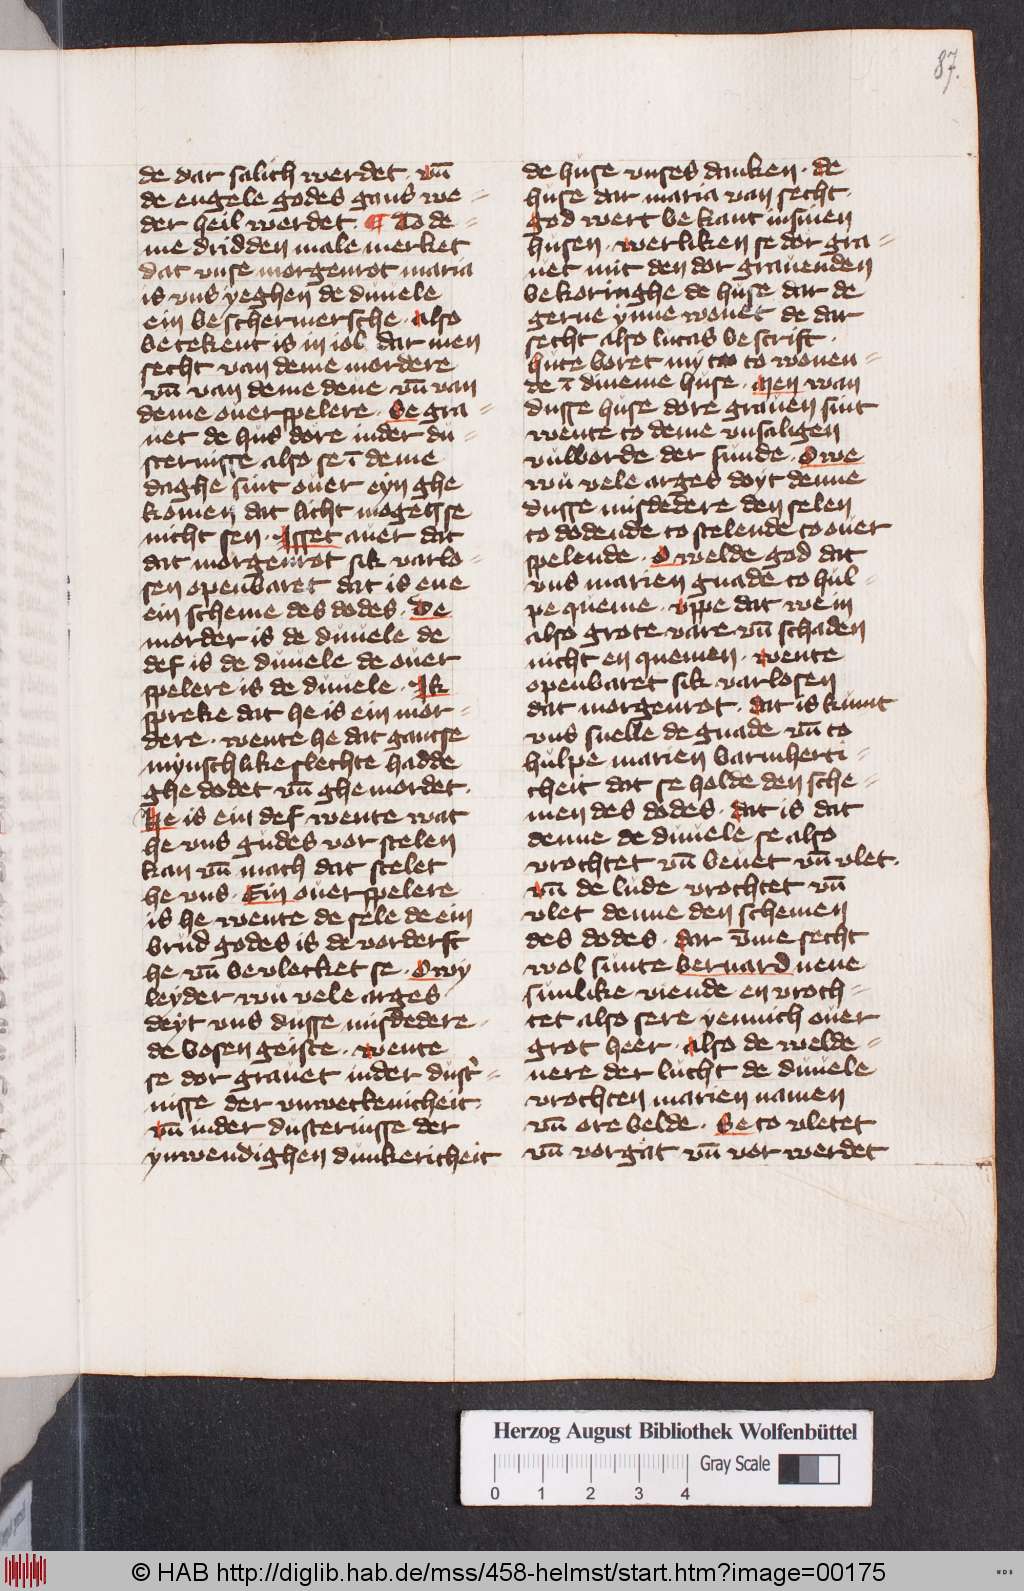 87.
de dar salich werdet. vn̄
de engele godes gans we-
der heil werdet. ¶ To de-
me dridden male merket
dat vnse morgenrot maria
is vns yeghen de duuele
ein beschermersche. also
betekent is in iob dar men
secht van deme mordere
vn̄ van deme deue vn̄ van
deme ouerspelere. Se gra-
uet de hus dore in der du-
sternisse also se ī deme
daghe sint ouer eyn ghe
komen dat licht mogen se
nicht sen. Isset auer dat
dat morgenrot sik varlo-
sen openbaret dat is ene
ein scheme des dodes. De
morder is de duuele de
def is de duuele de ouer
spelere is de duuele. Ik
spreke dat he is ein mor-
dere. wente he dat gantse
mynschlike slechte hadde
ghe dodet vn̄ ghe mordet.
He is ein def wente wat
he vns gudes vor stelen
kan vn̄ mach dat stelet
he vns. Ein ouerspelere
is he wente de sele de ein
brud godes is de vorderft
he vn̄ bevlecket se. Owy
leyder wu vele arges
deyt vns dusse misdedere.
de bosen geiste. wente
se dor grauet in der dust'-
nisse der vnwetkenicheit.
vn̄ in der dusternisse der
ynwendighen dunkericheit
de huse vnses danken. de
huse dar maria van secht.
god wert bekant in sinen
husen. werliken se dor gra-
uet mit den dor grauenden
bekoringhe de huse dar de
gerne ynne wonet de dar
secht also lucas bescrift.
hute boret my to wonen-
de ī dineme huse. Men wan
dusse huse dore grauen sint
wente to deme vnsaligen
vulborde der sunde. Owe
wu vele arges doyt denne
dusse misdedere den selen
to dodende to stelende to ouer
spelende. O welde god dat
vns marien gnade to hul-
pe queme. vppe dat we in
also grote vare vn̄ schaden
nicht en quemen. wente
openbaret sik varlosen
dat morgenrot. dat is kumt
vns snelle de gnade vn̄ to
hulpe marien barmherti-
cheit dat se holde den sche-
men des dodes. dat is dat
denne de duuele se also
vrochtet vn̄ beuet vn̄ vlet.
vn̄ de lude vrochtet vn̄
vlet denne den schemen
des dodes. dar v̄me secht
wol sunte bernard nene
sunlike viende en vroch-
tet also sere yennich ouer
grot heer. also de welde-
nere der lucht de duuele
vrochten marien namen
vn̄ ore belde. Se to vletet
vn̄ vorgat vn̄ vor werdet
Herzog August Bibliothek Wolfenbüttel
Gray Scale
0 1 2 3 4
© HAB http://diglib.hab.de/mss/458-helmst/start.htm?image=00175